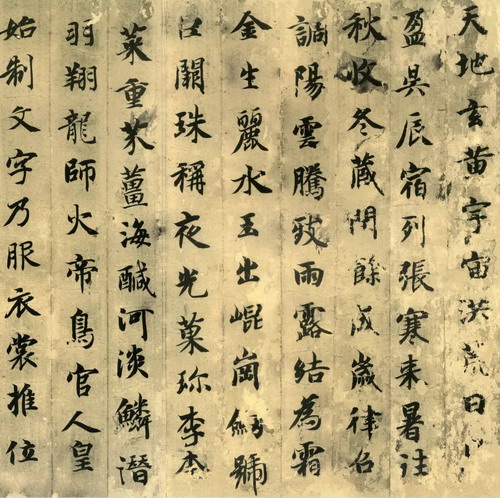 天地玄黄宇宙洪荒日
盈昃辰宿列張寒来暑往
秋收冬蔵閏餘成歲律召
調陽雲騰致雨露結為霜
金生麗水玉出崐崗劒號
巨闕珠稱夜光菓珍李柰
菜重芥薑海醎河淡鱗潛
羽翔龍師火帝鳥官人皇
始制文字乃服衣裳推位